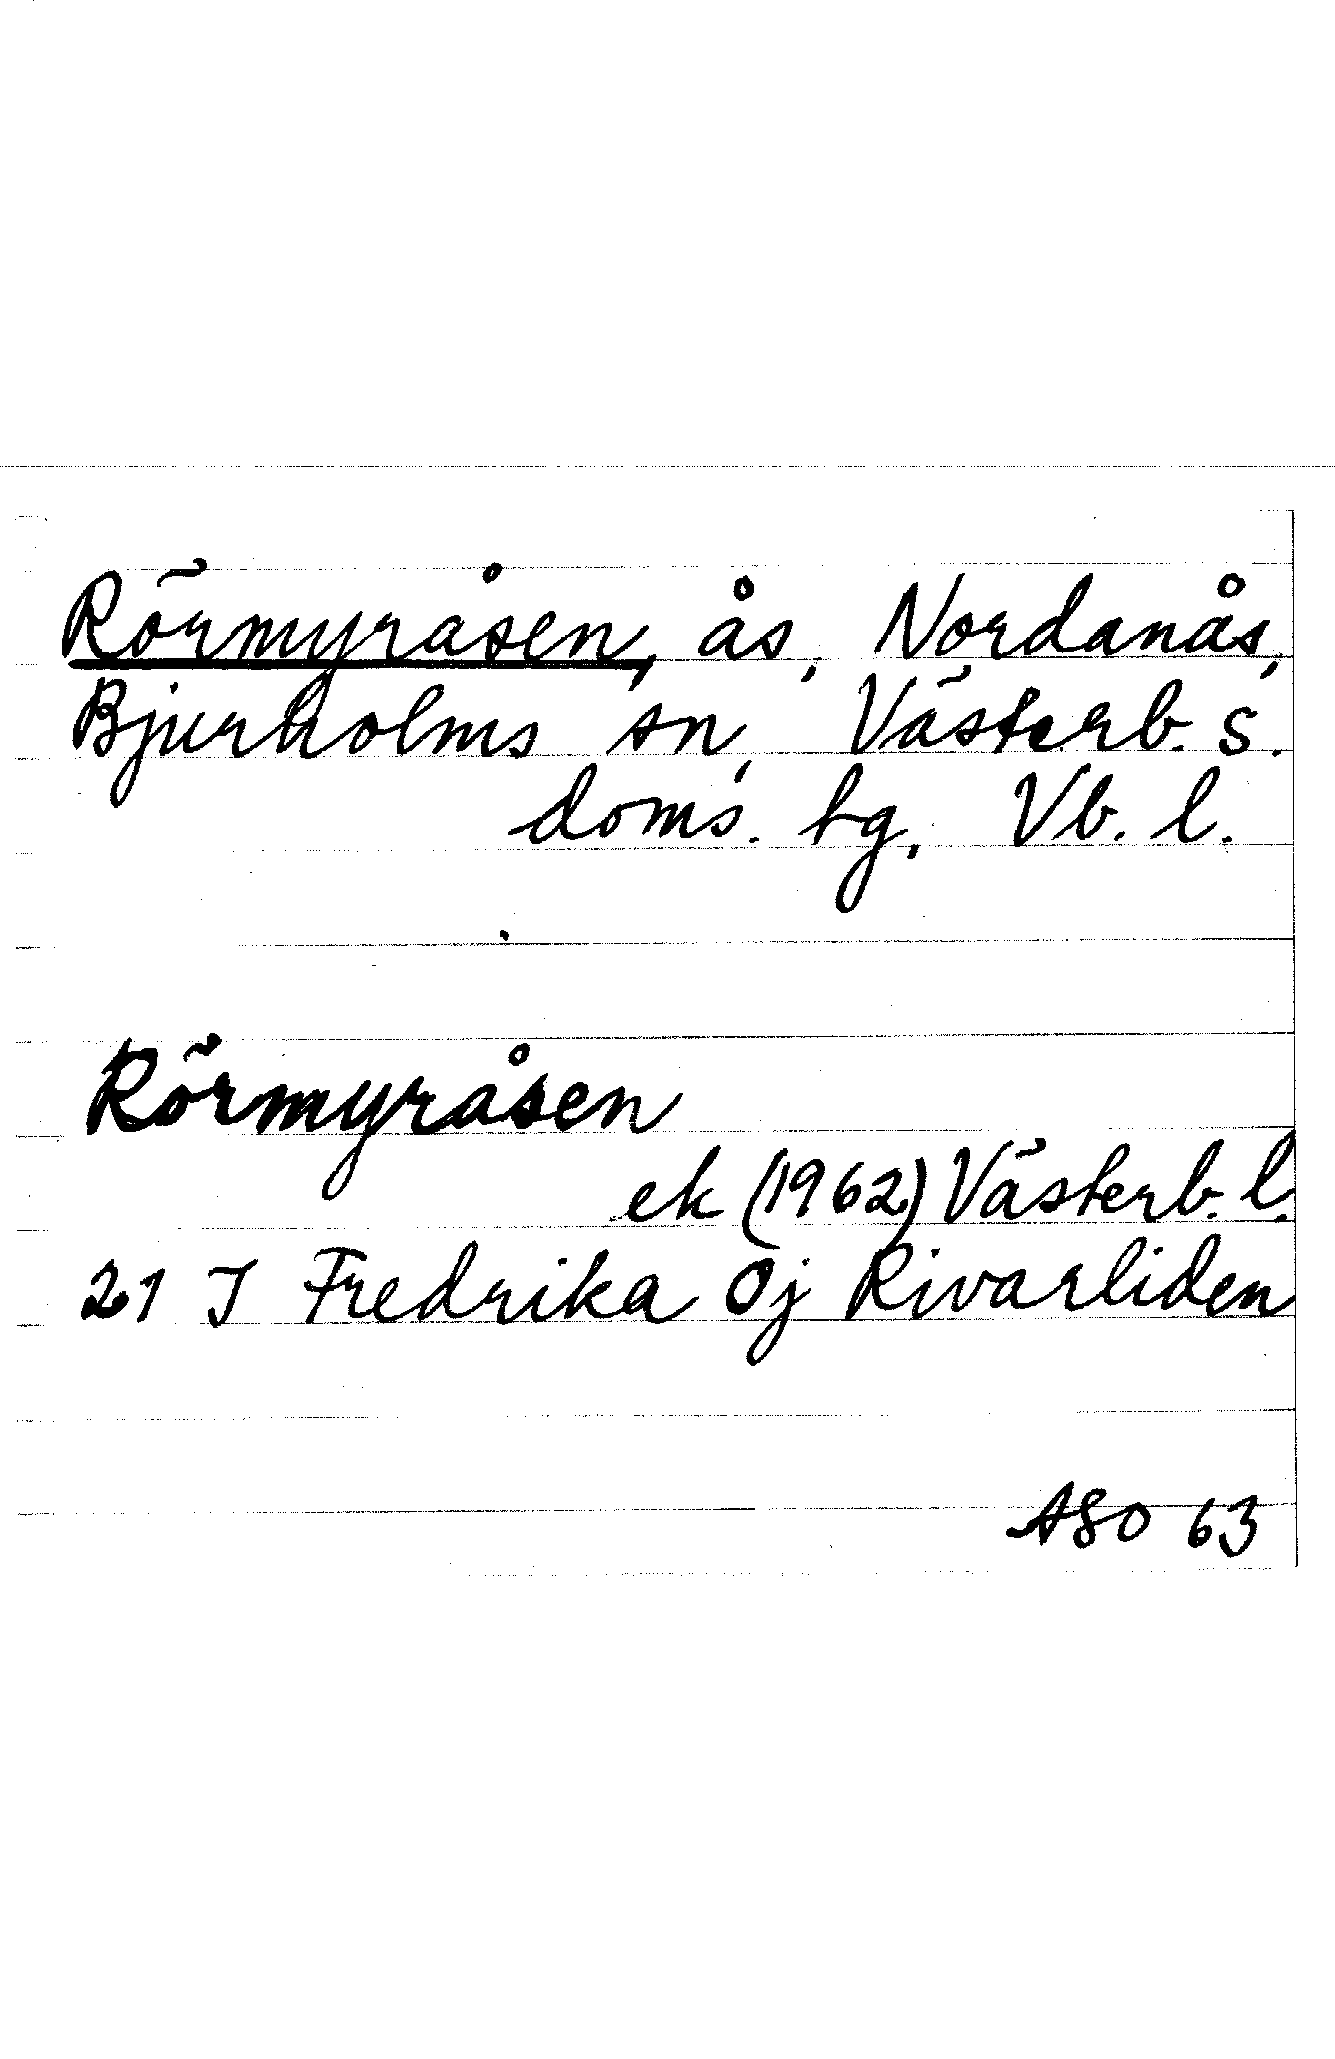 Rörmyråsen, ås, Nordanås,
Bjurholms sn, Västerb. s.
doms. tg, Vb. l.
Rörmyråsen
ek (1962) Västerb. l.
21 J Fredrika 0j Rivarliden
ASO 63